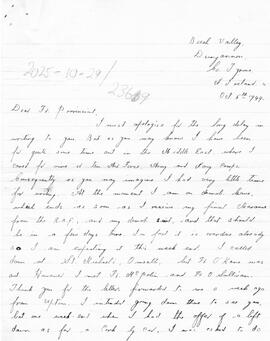 Beech Valley,
Dungannon
Co. Tyrone
N. Ireland.
Oct 6th 1949.
2025-10-29/
23609
Dear Fr. Provincial,
I must apologise for the long delay in
writing to you. But as you may know I have been
for quite some time out in the Middle East where I
cared for nine or ten Air Force, Army and Navy Camps.
Consequently as you may imagine I had very little time
for writing. At the moment I am on leave here,
which ends as soon as I receive my final clearance
from the R.A.F., and my and that should
be in a few days time. In fact it is overdue already
so I am expecting it this week end. I called
down at St Michael's, Omeath, but Fr O'Kane was
out. However I met Fr McPolin and Fr O'Sullivan.
Thank you for the letter forwarded to me a week ago
from Upton. I intended going down there to see you,
last week end when I had the offer of a lift
down as far as Cork by car. I was asked to do